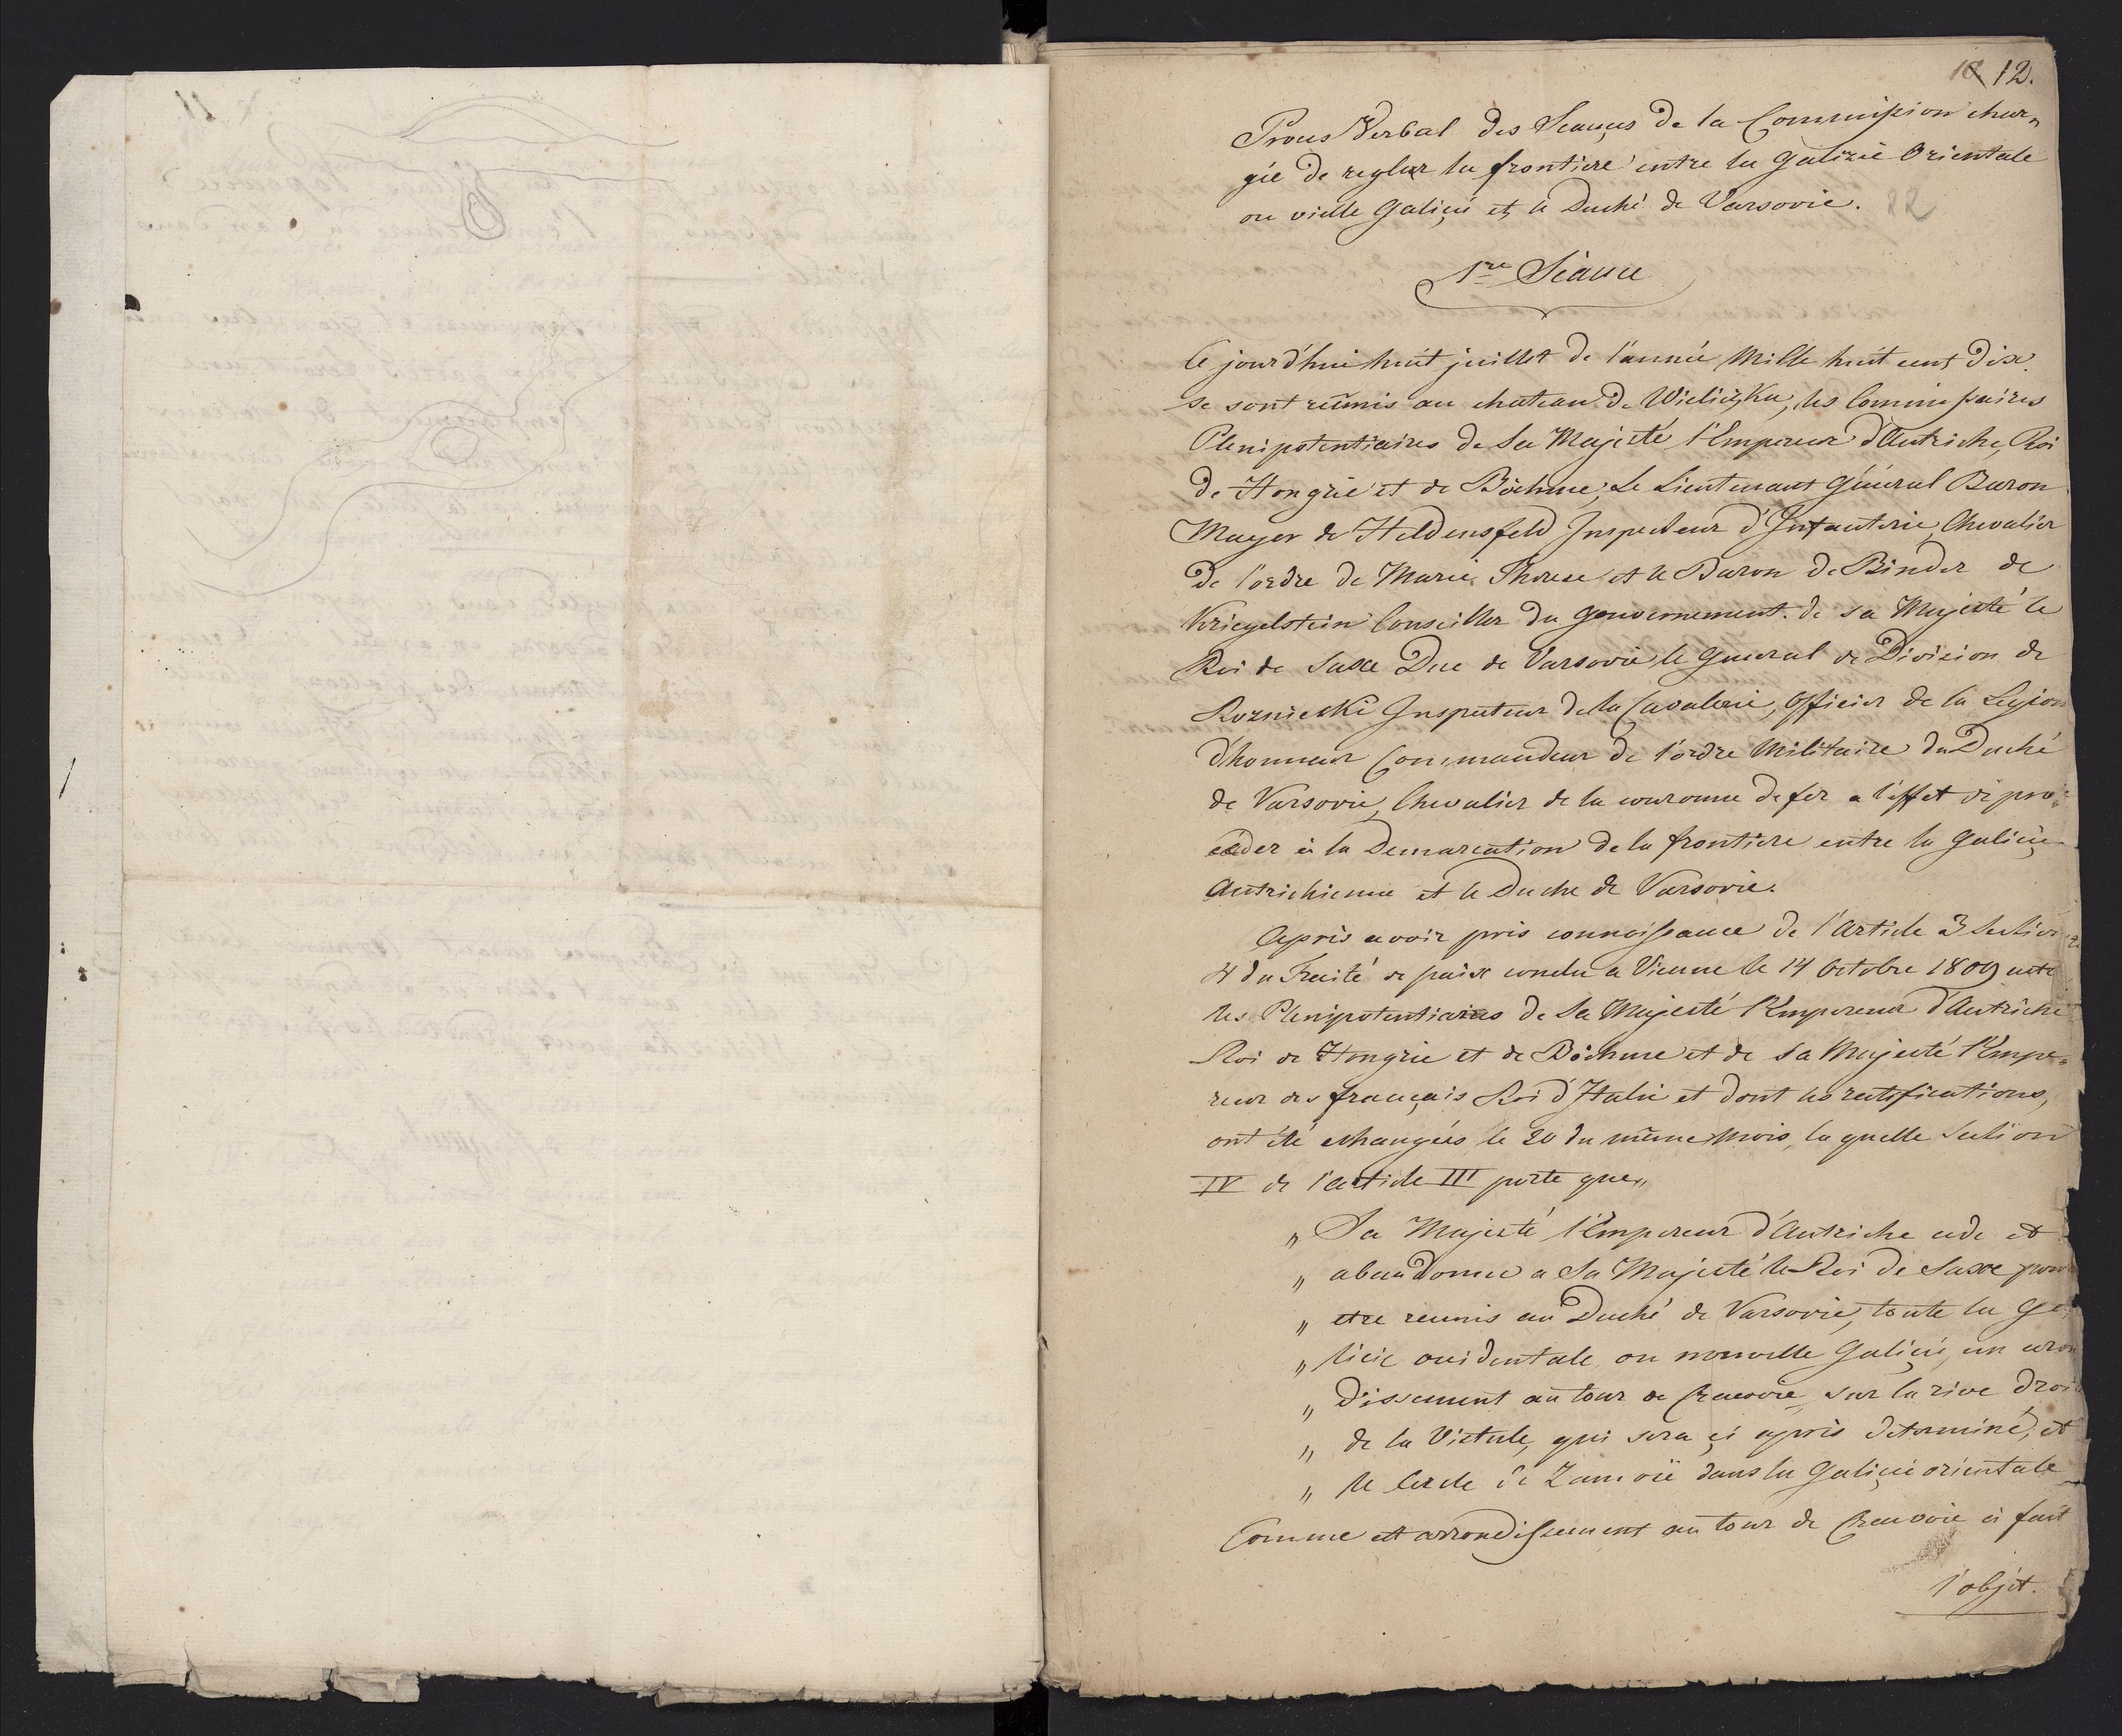 18 12.
Procés Verbal des Seançes de la Commission char„
gée de regler la frontiere entre la Galizie Orientale
ou vielle Galiçie et le Duché de Varsovie.
22
1re Séance
Ce jourd'hui huit juillet de l'année Mille huit cent dix.
se sont réunis au chateau de Wieliczka, les Commissaires
Plenipotentiaires de Sa Majesté l'Empereur d'Autriche, Roi
de Hongrie et de Bôehme, Le Lieutenant Général Baron
Mayer de Heldensfeld Inspecteur d'Infanterie, Chevalier
de l'ordre de Marie Therese et le Baron de Binder de
Kriegelstein Conseiller du gouvernement. de sa Majesté le
Roi de Saxe Duc de Varsovie le General de Division de
Roznieski Inspecteur de la Cavalerie, Officier de la Legion
d'honneur Commandeur de l'ordre Militaire du Duché
de Varsovie, Chevalier de la couronne de fer a l'effet de pro„
ceder à la Demarcation de la frontiere entre la Galiçie
Autrichienne et le Duche de Varsovie.
Après avoir pris connoissance de l'Article 3 Section
4 du Traité de paix conclu a Vienne le 14 Octobre 1809 entre
les Plenipotentiaires de Sa Majesté l'Empereur d'Autriche
Roi de Hongrie et de Bôehme et de sa Majesté l'Empe„
reur des français Roi d'Italie et dont les ratifications,
ont été echangées le 20 du même Mois, la quelle Section
IV de l'article III porte que„
„ Sa Majesté l'Empereur d'Autriche cede et
„ abandonne a Sa Majesté le Roi de Saxe pour
„ etre reunis au Duché de Varsovie, toute la Ga„
„ licie occidentale, ou nouvelle Galiçie, un arron
„ dissement au tour de Cracovie, sur la rive droi
„ de la Vistule, qui sera çi après determiné, et
„ le Cercle de Zamoïe dans la Galiçie orientale
Comme cet arrondissement au tour de Cracovie à fait
l'objet.